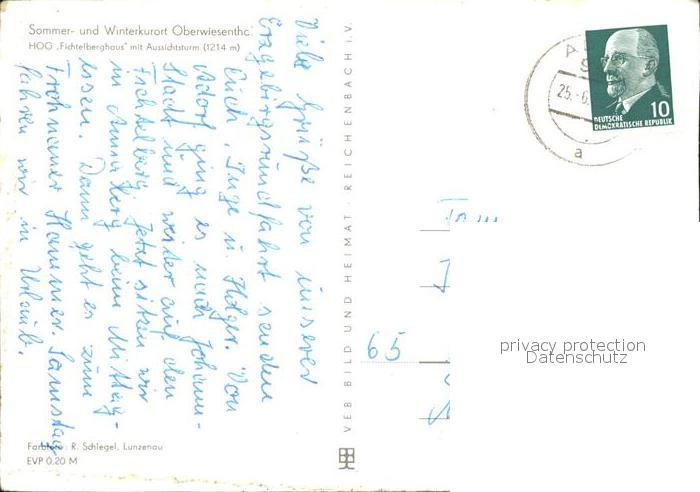 Sommer- und Winterkurort Oberwiesenthc
HOG „Fichtelberghaus" mit Aussichtsturm (1214 m)
Viele Grüße von unserer
Erzgebirgsrundfahrt senden
Euch, Inge u. Holger. Von
Adorf ging es nach Johann-
stadt und weiter auf den
Fichtelberg. Jetzt sitzen wir
in Annaberg beim Mittag-
essen. Dann geht es zum
Frohnauer Hammer. Samstag
fahren wir in Urlaub.
Farbfoto: R. Schlegel, Lunzenau
EVP 0,20 M
VEB BILD UND HEIMAT · REICHENBACH i. V.
25.-6.
a
10
DEUTSCHE
DEMOKRATISCHE REPUBLIK
65
privacy protection
Datenschutz